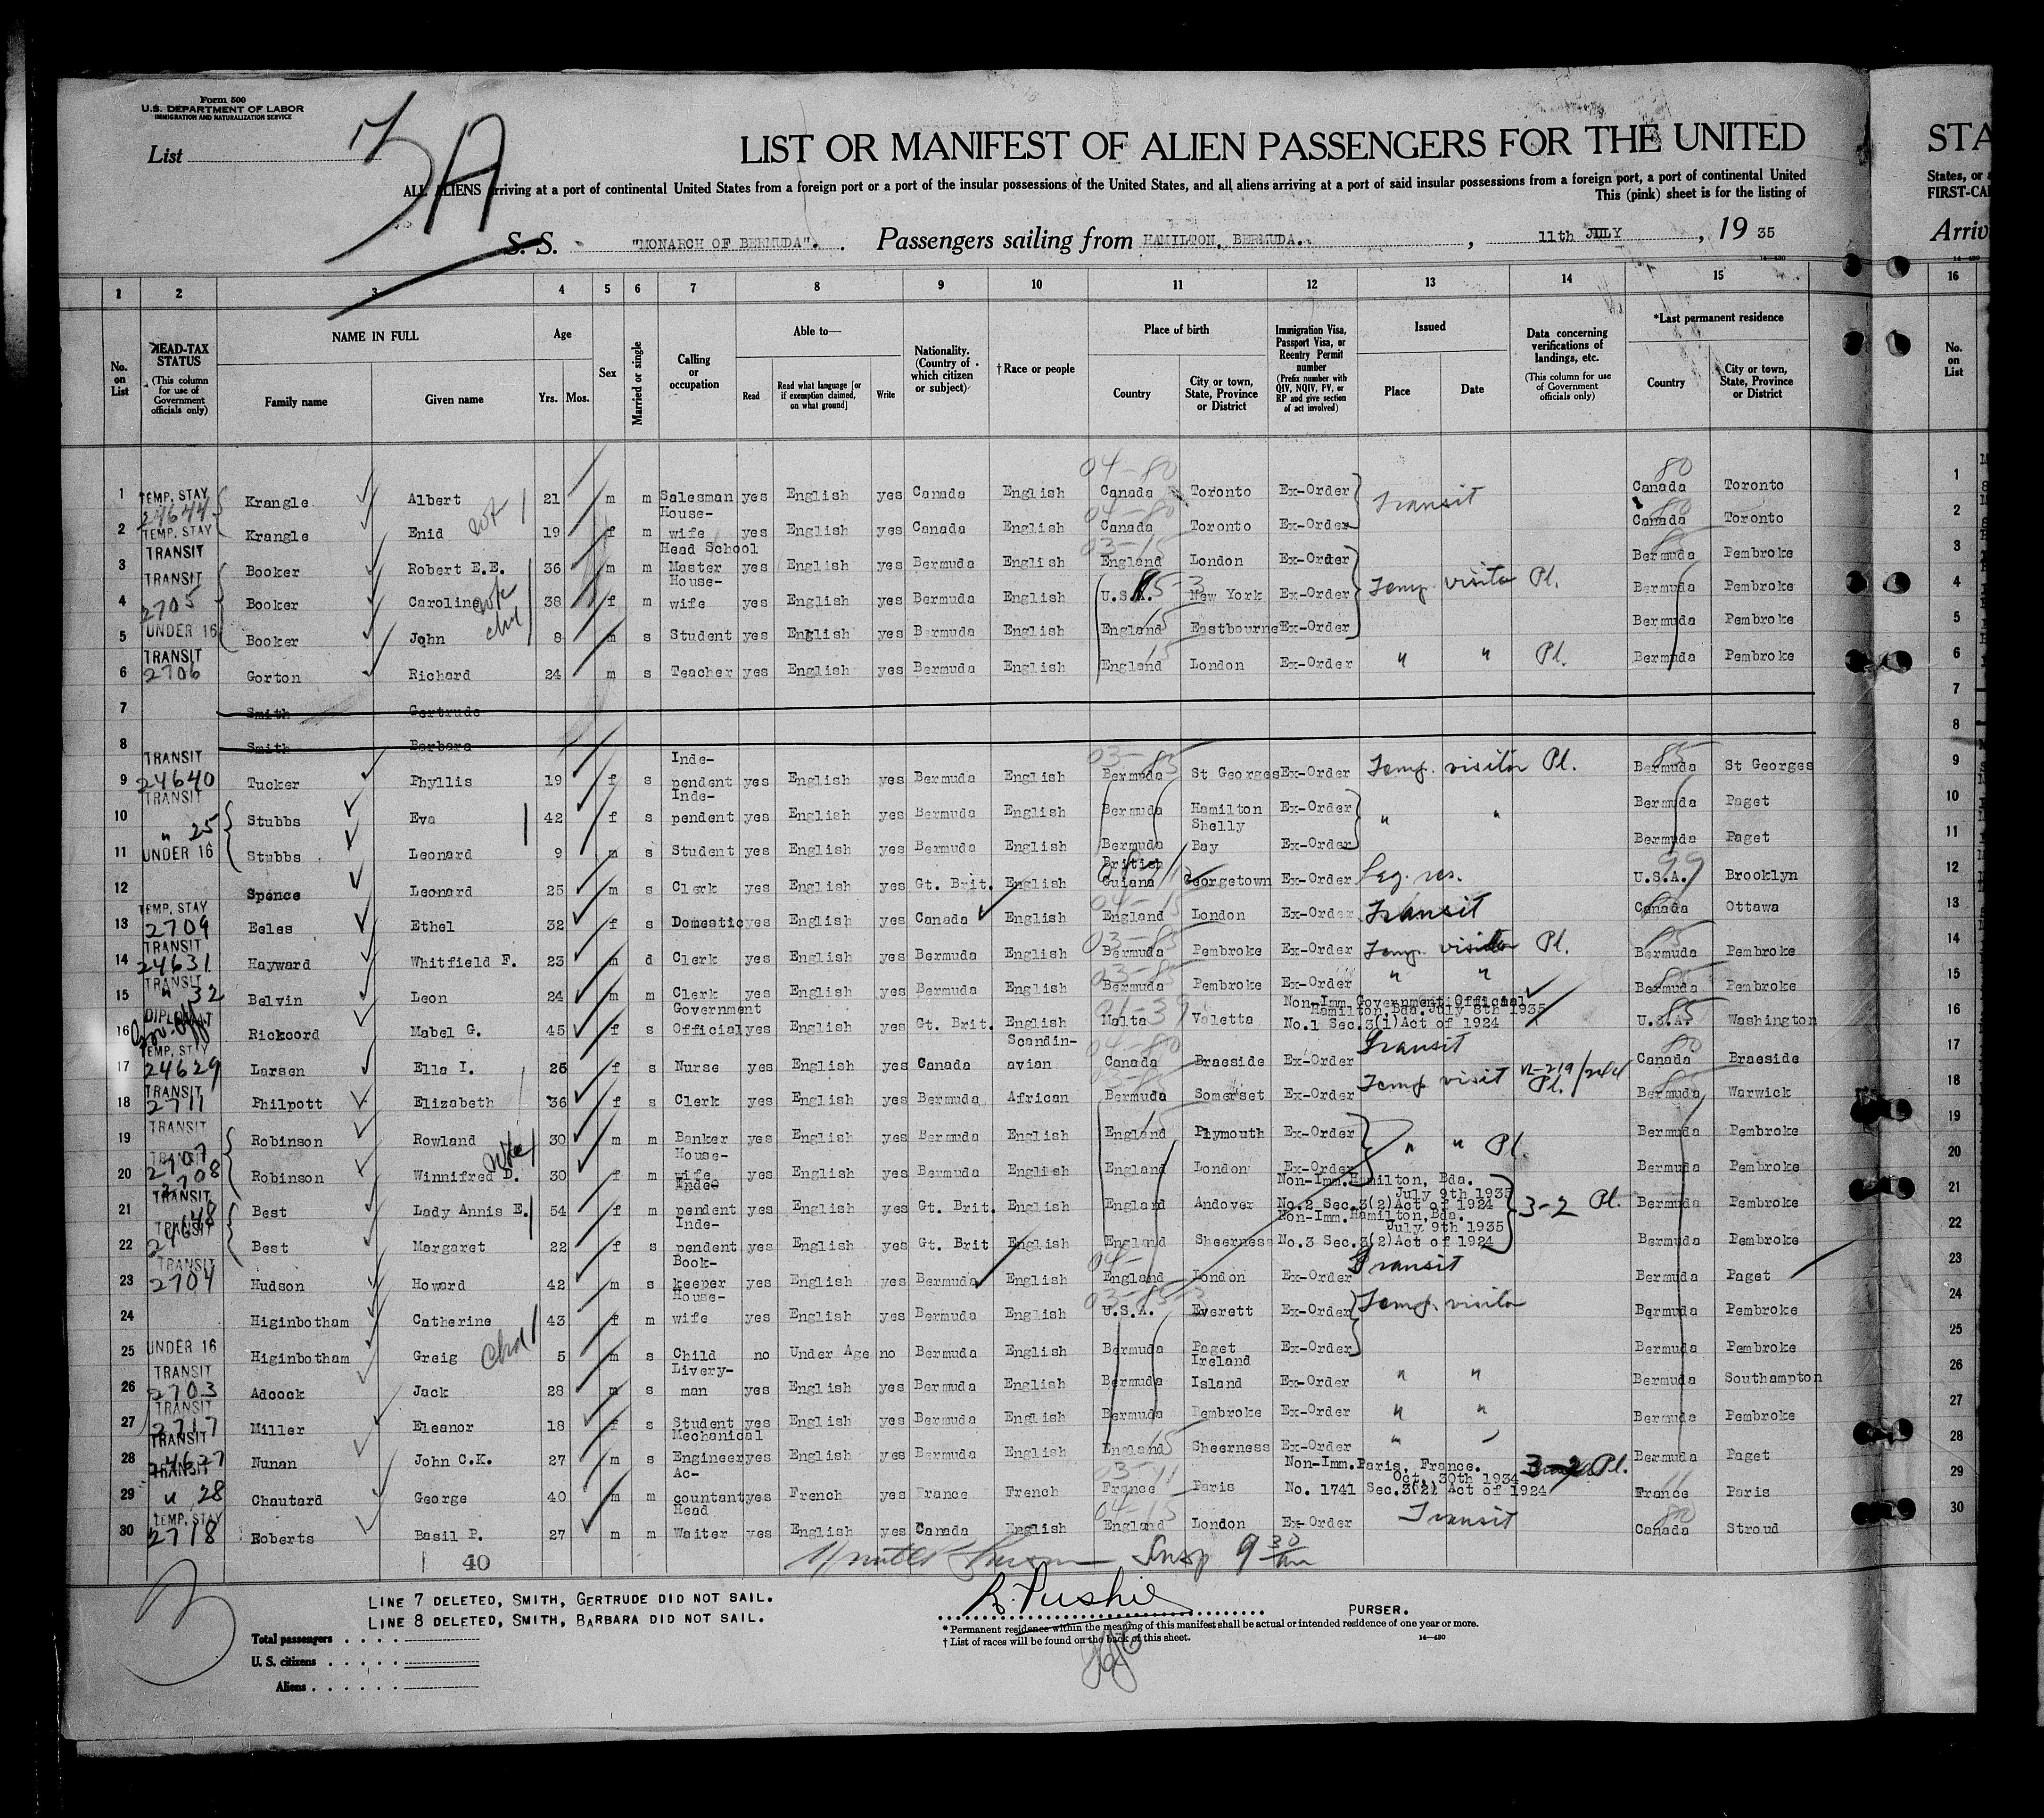 Form 500
U.S. DEPARTMENT OF LABOR
IMMIGRATION AND NATURALIZATION SERVICE
List
3A
LIST OR MANIFEST OF ALIEN PASSENGERS FOR THE UNITED
STA
ALL ALIENS arriving at a port of continental United States from a foreign port or a port of the insular possessions of the United States, and all aliens arriving at a port of said insular possessions from a foreign port, a port of continental United
States, or a
This (pink) sheet is for the listing of
FIRST-CA
S. S. "MONARCH OF BERMUDA". Passengers sailing from HAMILTON, BERMUDA. , 11th JULY , 19 35
Arriv
1 2 3 4 5 6 7 8 9 10 11 12 13 14 15 16
No. on List
HEAD-TAX STATUS (This column for use of Government officials only)
NAME IN FULL Family name Given name
Age Yrs. Mos.
Sex
Married or single
Calling or occupation
Able to— Read Read what language [or if exemption claimed, on what ground] Write
Nationality. (Country of which citizen or subject)
† Race or people
Place of birth Country City or town, State, Province or District
Immigration Visa, Passport Visa, or Reentry Permit number (Prefix number with QIV, NQIV, PV, or RP and give section of act involved)
Issued Place Date
Data concerning verifications of landings, etc. (This column for use of Government officials only)
*Last permanent residence Country City or town, State, Province or District
No. on List
04-80 80
1 TEMP. STAY 24644 Krangle Albert 21 m m Salesman yes English yes Canada English Canada Toronto Ex-Order Transit Canada Toronto 1
2 TEMP. STAY Krangle Enid 19 f m House-wife yes English yes Canada English Canada Toronto Ex-Order Canada Toronto 2
3 TRANSIT Booker Robert E.E. 36 m m Head School Master yes English yes Bermuda English England London Ex-Order Bermuda Pembroke 3
4 TRANSIT 2705 Booker Caroline 38 f m House-wife yes English yes Bermuda English U.S.A. New York Ex-Order Temp visitor Pl. Bermuda Pembroke 4
5 UNDER 16 Booker John 8 m s Student yes English yes Bermuda English England Eastbourne Ex-Order Bermuda Pembroke 5
6 TRANSIT 2706 Gorton Richard 24 m s Teacher yes English yes Bermuda English England London Ex-Order " " Pl. Bermuda Pembroke 6
7 Smith Gertrude 7
8 Smith Barbara 8
9 TRANSIT 24640 Tucker Phyllis 19 f s Inde-pendent yes English yes Bermuda English Bermuda St Georges Ex-Order Temp. visitor Pl. Bermuda St Georges 9
10 TRANSIT " 25 Stubbs Eva 42 f s Inde-pendent yes English yes Bermuda English Bermuda Hamilton Ex-Order " " Bermuda Paget 10
11 UNDER 16 Stubbs Leonard 9 m s Student yes English yes Bermuda English Bermuda Shelly Bay Ex-Order Bermuda Paget 11
12 Spence Leonard 25 m s Clerk yes English yes Gt. Brit. English British Guiana Georgetown Ex-Order Leg. res. U.S.A. Brooklyn 12
13 TEMP. STAY 2709 Eeles Ethel 32 f s Domestic yes English yes Canada English England London Ex-Order Transit Canada Ottawa 13
14 TRANSIT 24631 Hayward Whitfield F. 23 m d Clerk yes English yes Bermuda English Bermuda Pembroke Ex-Order Temp visitor Pl. Bermuda Pembroke 14
15 TRANSIT " 32 Belvin Leon 24 m m Clerk yes English yes Bermuda English Bermuda Pembroke Ex-Order " " Bermuda Pembroke 15
16 DIPLOMAT Gov. Off Rickcord Mabel G. 45 f s Government Official yes English yes Gt. Brit. English Malta Valetta Non-Imm Government Official Hamilton, Bda. July 8th 1935 No.1 Sec.3(1)Act of 1924 U.S.A. Washington 16
17 TEMP. STAY 24629 Larsen Ella I. 26 f s Nurse yes English yes Canada Scandin-avian Canada Braeside Ex-Order Transit Canada Braeside 17
18 TRANSIT 2711 Philpott Elizabeth 36 f s Clerk yes English yes Bermuda African Bermuda Somerset Ex-Order Temp visit Pl. Bermuda Warwick 18
19 TRANSIT 2707 Robinson Rowland 30 m m Banker yes English yes Bermuda English England Plymouth Ex-Order " " Pl. Bermuda Pembroke 19
20 TRANSIT 2708 Robinson Winnifred D. 30 f m House-wife yes English yes Bermuda English England London Ex-Order Bermuda Pembroke 20
21 TRANSIT Best Lady Annis E. 54 f m Inde-pendent yes English yes Gt. Brit. English England Andover Non-Imm.Hamilton, Bda. July 9th 1935 No.2 Sec.3(2)Act of 1924 3-2 Pl. Bermuda Pembroke 21
22 TRANSIT Best Margaret 22 f s Inde-pendent yes English yes Gt. Brit English England Sheerness Non-Imm.Hamilton,Bda. July 9th 1935 No.3 Sec.3(2)Act of 1924 Bermuda Pembroke 22
23 TRANSIT 2704 Hudson Howard 42 m s Book-keeper yes English yes Bermuda English England London Ex-Order Transit Bermuda Paget 23
24 Higinbotham Catherine 43 f m House-wife yes English yes Bermuda English U.S.A. Everett Ex-Order Temp. visitor Bermuda Pembroke 24
25 UNDER 16 Higinbotham Greig 5 m s Child no Under Age no Bermuda English Bermuda Paget Ex-Order Bermuda Pembroke 25
26 TRANSIT 2703 Adcock Jack 28 m s Livery-man yes English yes Bermuda English Bermuda Ireland Island Ex-Order " " Bermuda Southampton 26
27 TRANSIT 2717 Miller Eleanor 18 f s Student yes English yes Bermuda English Bermuda Pembroke Ex-Order " " Bermuda Pembroke 27
28 TRANSIT 24627 Nunan John C.K. 27 m s Mechanical Engineer yes English yes Bermuda English England Sheerness Ex-Order " " Bermuda Paget 28
29 TRANSIT " 28 Chautard George 40 m m Ac-countant yes French yes France French France Paris Non-Imm.Paris, France. Oct. 30th 1934 No. 1741 Sec.3(2) Act of 1924 3-2 Pl. France Paris 29
30 TEMP. STAY 2718 Roberts Basil P. 27 m m Head Waiter yes English yes Canada English England London Ex-Order Transit Canada Stroud 30
40
Insp 9 30 am
LINE 7 DELETED, SMITH, GERTRUDE DID NOT SAIL.
LINE 8 DELETED, SMITH, BARBARA DID NOT SAIL.
R. Pushie PURSER.
Total passengers
U. S. citizens
Aliens
* Permanent residence within the meaning of this manifest shall be actual or intended residence of one year or more.
† List of races will be found on the back of this sheet.
14—480